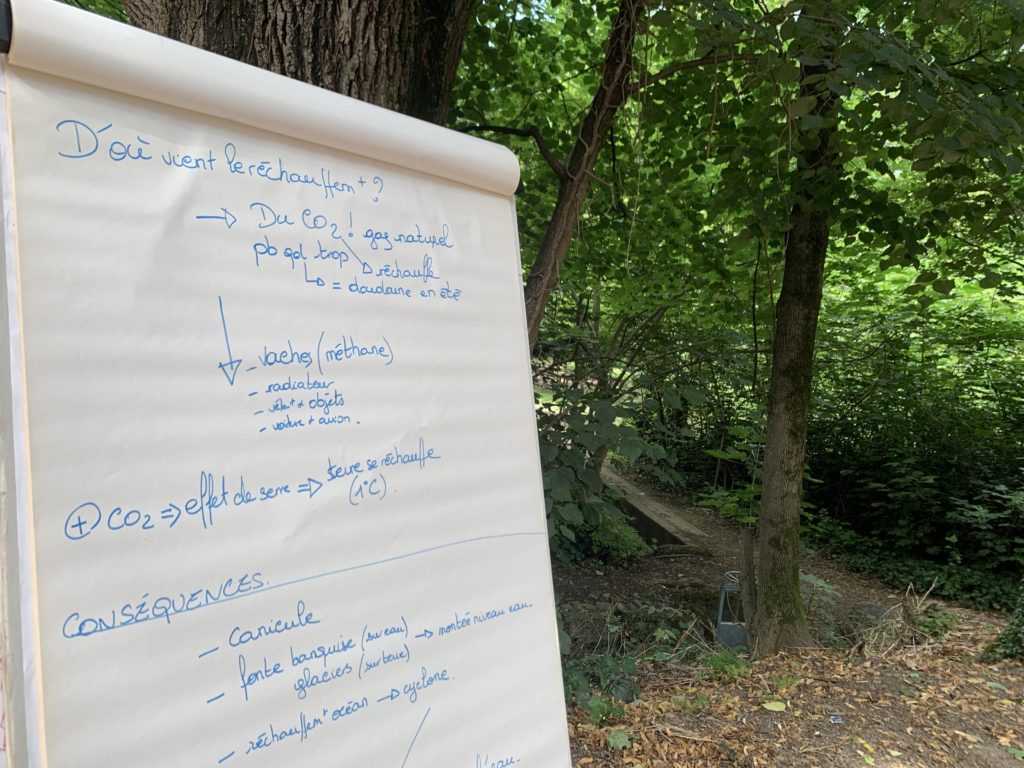 D'où vient le réchauffem+ ?
→ Du CO2 ! gaz naturel
pb qd trop → réchauffe
↳ = doudoune en été
- vaches (méthane)
- radiateur
- vêtem+ + objets
- voiture + avion.
⊕ CO2 ⇒ effet de serre ⇒ terre se réchauffe
(1°C).
CONSÉQUENCES.
- canicule
- fonte banquise (sur eau) → montée niveau eau
glaciers (sur terre)
- réchauffem+ océan → cyclone.
l'eau.